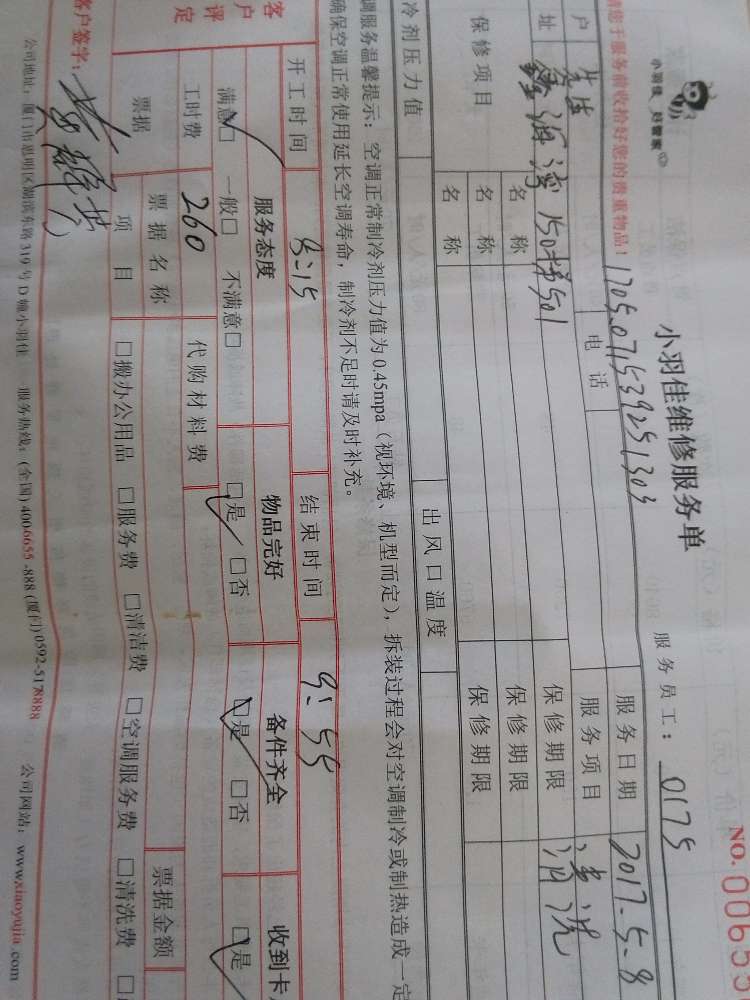 小羽佳 好管家
小羽佳维修服务单
NO. 00655
请您于服务前收拾好您的贵重物品！
1705071539251303
服务员工：0175
户
先生
电话
服务日期
2017.5.8
址
鑫海湾150梯501
服务项目
清洗
保修项目
名称
保修期限
名称
保修期限
名称
保修期限
冷剂压力值
出风口温度
调服务温馨提示：空调正常制冷剂压力值为0.45mpa（视环境、机型而定），拆装过程会对空调制冷或制热造成一定
确保空调正常使用延长空调寿命，制冷剂不足时请及时补充。
开工时间
9:15
结束时间
9:55
客户评定
服务态度
物品完好
备件齐全
收到卡
满意□ 一般□ 不满意□
□是 □否
□是 □否
□是
工时费
260
代购材料费
票据
票据名称
票据金额
项目
□搬办公用品 □服务费 □清洁费 □空调服务费 □清洗费 □
客户签字：
公司地址：厦门市思明区湖滨东路319号D幢小羽佳 服务热线：(全国) 400-6655-888 (厦门) 0592-5178888 公司网站：www.xiaoyujia.com